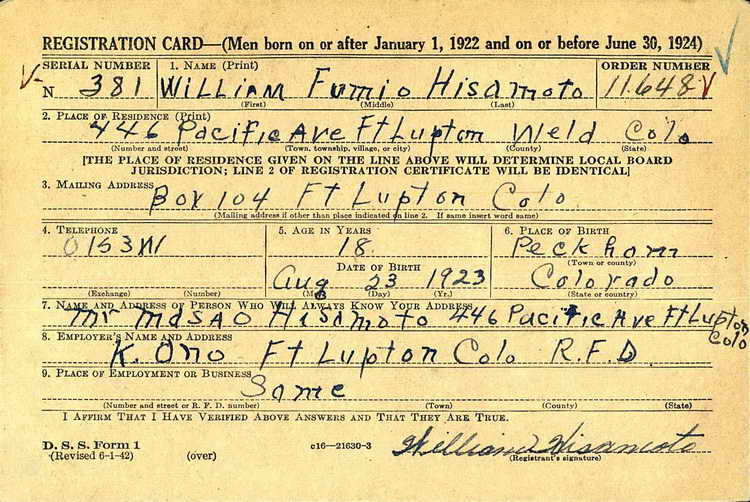 REGISTRATION CARD—(Men born on or after January 1, 1922 and on or before June 30, 1924)
SERIAL NUMBER 1. NAME (Print) ORDER NUMBER
N 381 WILLIAM Fumio Hisamoto 11648
(First) (Middle) (Last)
2. PLACE OF RESIDENCE (Print)
446 Pacific Ave Ft Lupton Weld Colo
(Number and street) (Town, township, village, or city) (County) (State)
[THE PLACE OF RESIDENCE GIVEN ON THE LINE ABOVE WILL DETERMINE LOCAL BOARD
JURISDICTION; LINE 2 OF REGISTRATION CERTIFICATE WILL BE IDENTICAL]
3. MAILING ADDRESS
Box 104 Ft Lupton Colo
(Mailing address if other than place indicated on line 2. If same insert word same)
4. TELEPHONE 5. AGE IN YEARS 6. PLACE OF BIRTH
0153W 18 Peckham
(Town or county)
DATE OF BIRTH
Aug 23 1923 Colorado
(Exchange) (Number) (Mo.) (Day) (Yr.) (State or country)
7. NAME AND ADDRESS OF PERSON WHO WILL ALWAYS KNOW YOUR ADDRESS
Mr Masao Hisamoto 446 Pacific Ave Ft Lupton
Colo
8. EMPLOYER'S NAME AND ADDRESS
K. Ono Ft Lupton Colo R.F.D.
9. PLACE OF EMPLOYMENT OR BUSINESS
Same
(Number and street or R. F. D. number) (Town) (County) (State)
I AFFIRM THAT I HAVE VERIFIED ABOVE ANSWERS AND THAT THEY ARE TRUE.
D. S. S. Form 1
(Revised 6-1-42) (over) c16—21630-3 William Hisamoto
(Registrant's signature)